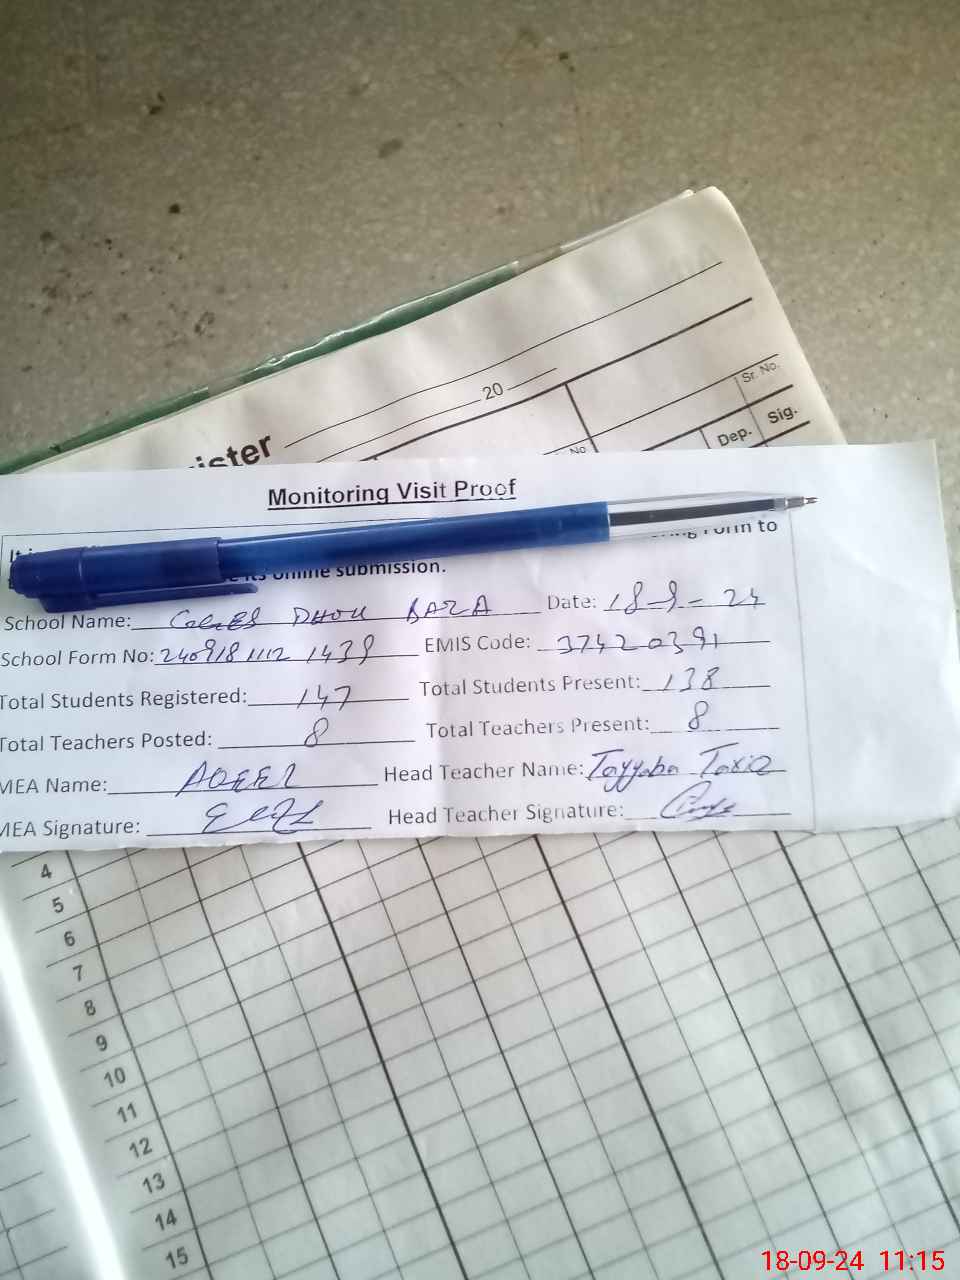 20
ister
Sr. No.
No
Dep. Sig.
Monitoring Visit Proof
Form to
its online submission.
School Name: DHOK BAZA Date: 18-9-24
School Form No: 2409181112 1439 EMIS Code: 37420391
Total Students Registered: 147 Total Students Present: 138
Total Teachers Posted: 8 Total Teachers Present: 8
MEA Name: Head Teacher Name: Tayyaba
MEA Signature: Head Teacher Signature:
4
5
6
7
8
9
10
11
12
13
14
15
18-09-24 11:15